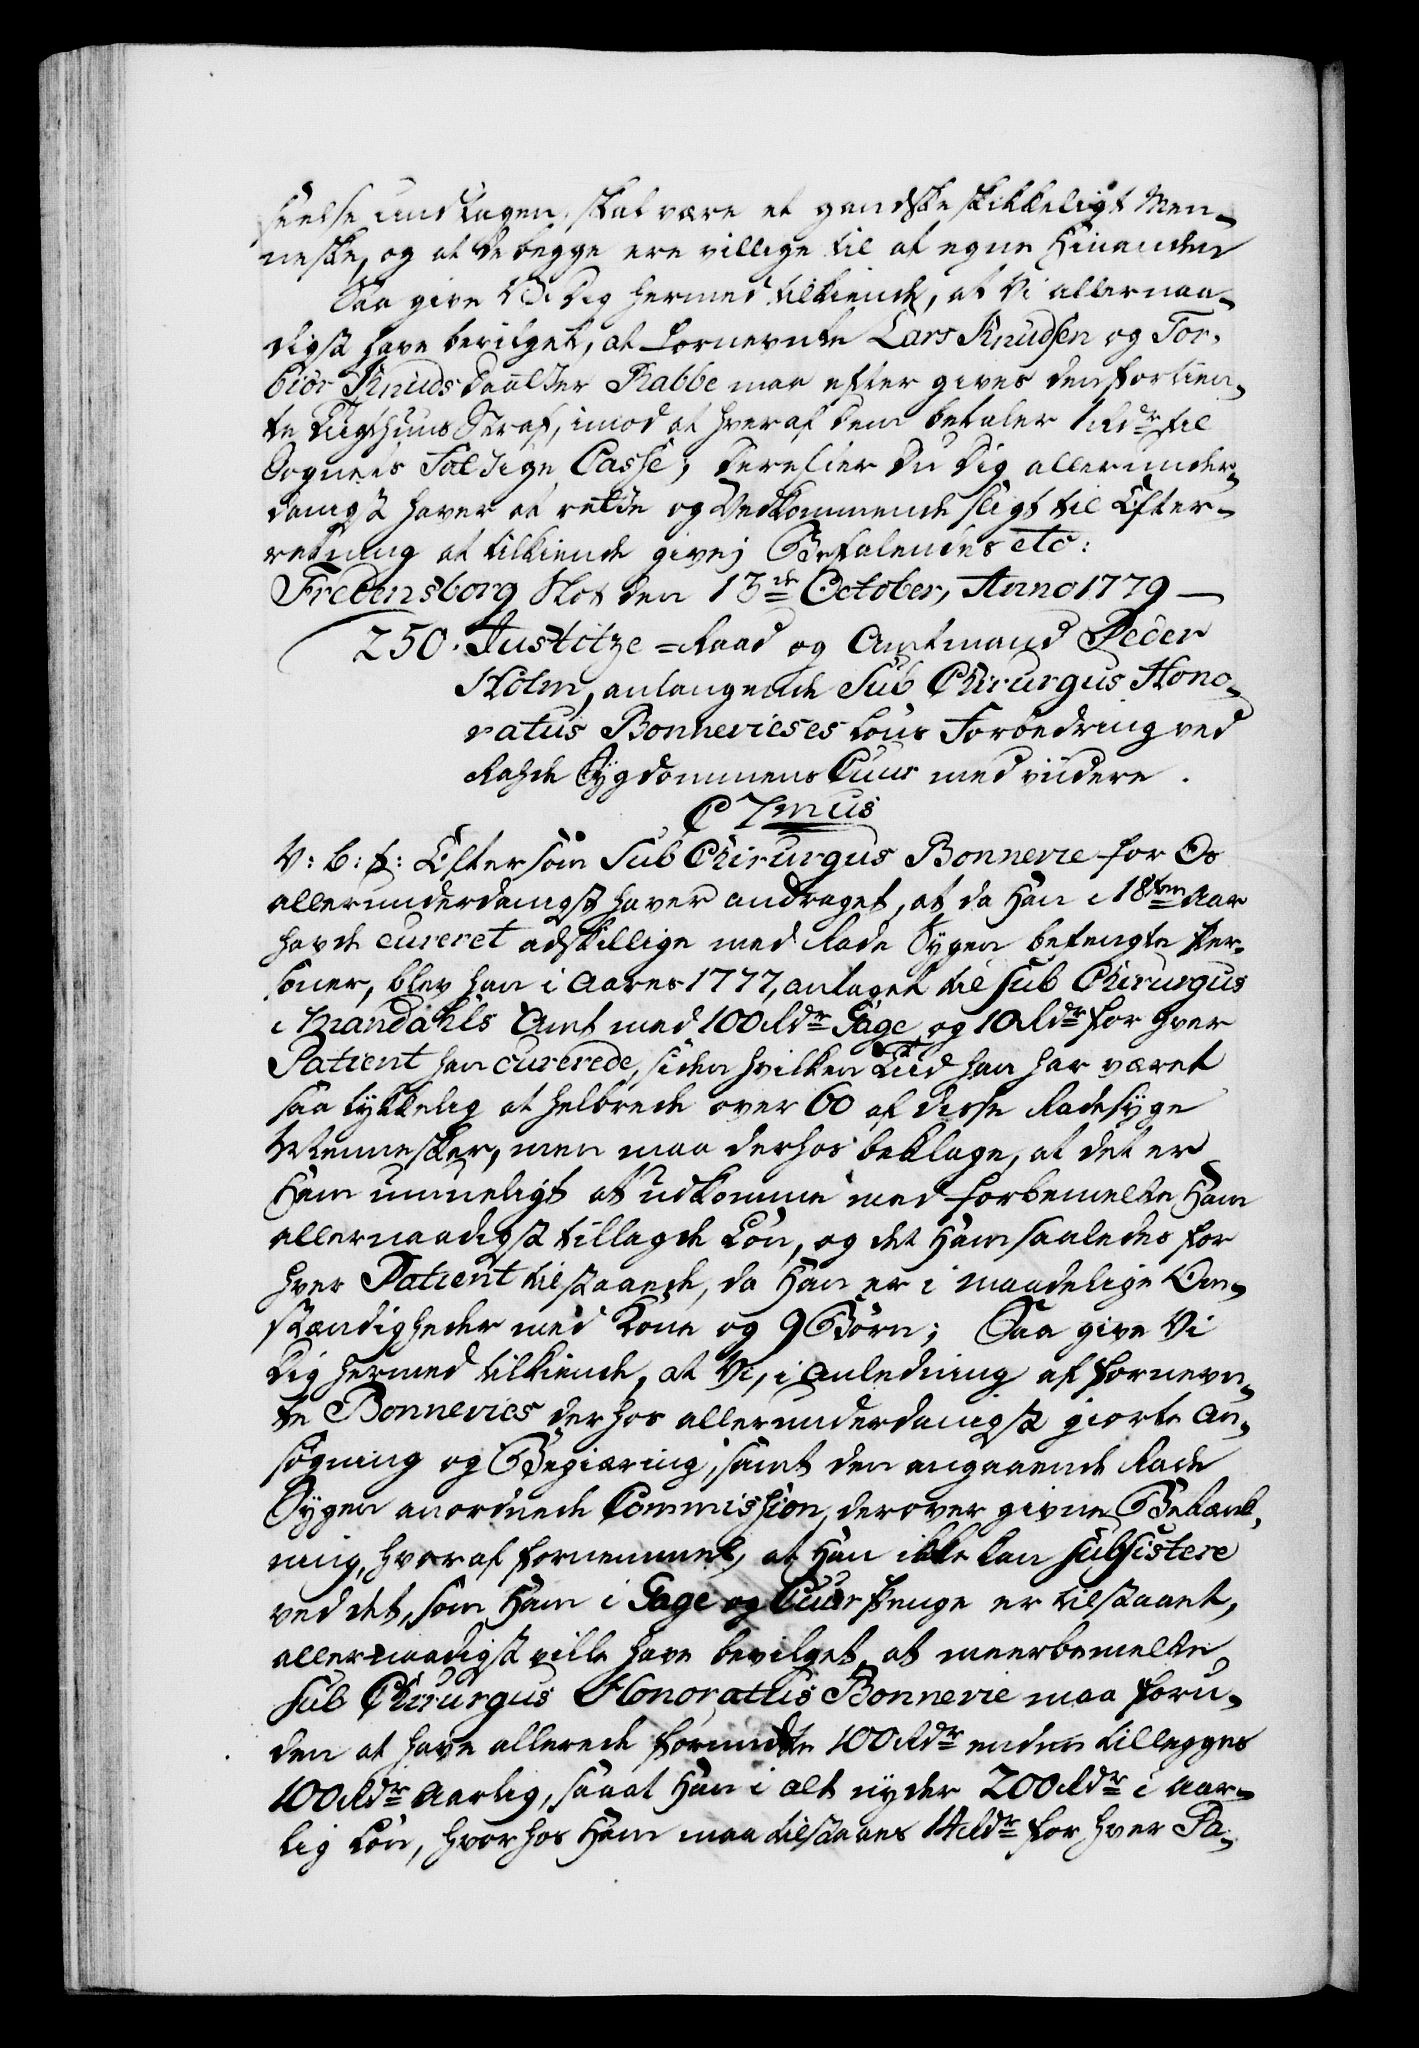 seelse undtagen, skal være et gandske skikkeligt Men-
neske, og at de begge ere villige til at egne Hinanden
Saa give Vi Dig hermed tilkiende, at Vi allernaa-
digst have bevilget, at fornevnte Lars Knudsen og Tor-
biør Knuds Daatter Rabbe maa efter gives den fortien-
te Tugthuus Straf, imod at hver af dem betaler 1 Rdr til
Sognets Fattige Casse; derefter Du Dig allerunder-
danigst haver at rette og Vedkommende sligt til Efter-
retning at tilkiende give; Befalendes etc:
Fredensborg Slot den 13de October, Anno 1779 —
250. Justitze-Raad og Amtmand Peder
Holm, anlangende Sub Chirurgus Hono-
ratus Bonnevieses Løns Forbedring ved
Rasde Sygdommens Cuur med viidere.
C 7mus
V: G: T: Eftersom Sub Chirurgus Bonnevie for Os
allerunderdanigst haver andraget, at da Han i 18ten Aar
havde cureret adskillige med Rade Sygen befengte Per-
soner, blev han i Aaret 1777, antaget til Sub Chirurgus
i Mandahls Amt med 100 Rdr Gage og 10 Rdr for hver
Patient han curerede, siden hvilken Tiid han har været
saa lykkelig at helbrede over 60 af disse Radesyge
Mennesker, men maa derhos beklage, at det er
Ham umueligt at udkomme med forbemelte Ham
allernaadigst tillagde Løn, og det Ham saaledes for
hver Patient tilstaaede, da Han er i maadelige Om-
stændigheder med Kone og 9 Børn; Saa give Vi
Dig hermed tilkiende, at Vi, i Anledning af fornevn-
te Bonnevies derhos allerunderdanigst giorte An-
søgning og Begiæring, samt den angaaende Rade
Sygen anordnede Commission, derover givne Betænk-
ning, hvoraf fornemmes, at Han ikke kan subsistere
ved det, som Ham i Gage og Cuur Penge er tilstaaet,
allernaadigst ville have bevilget, at meerbemelte
Sub Chirurgus Honoratus Bonnevie maa foru-
den at have allerede forundte 100 Rdr endnu tillegges
100 Rdr Aarlig, saa at Han i alt nyder 200 Rdr i aar-
lig Løn, hvorhos Ham maa tilstaaes 14 Rdr for hver Pa-